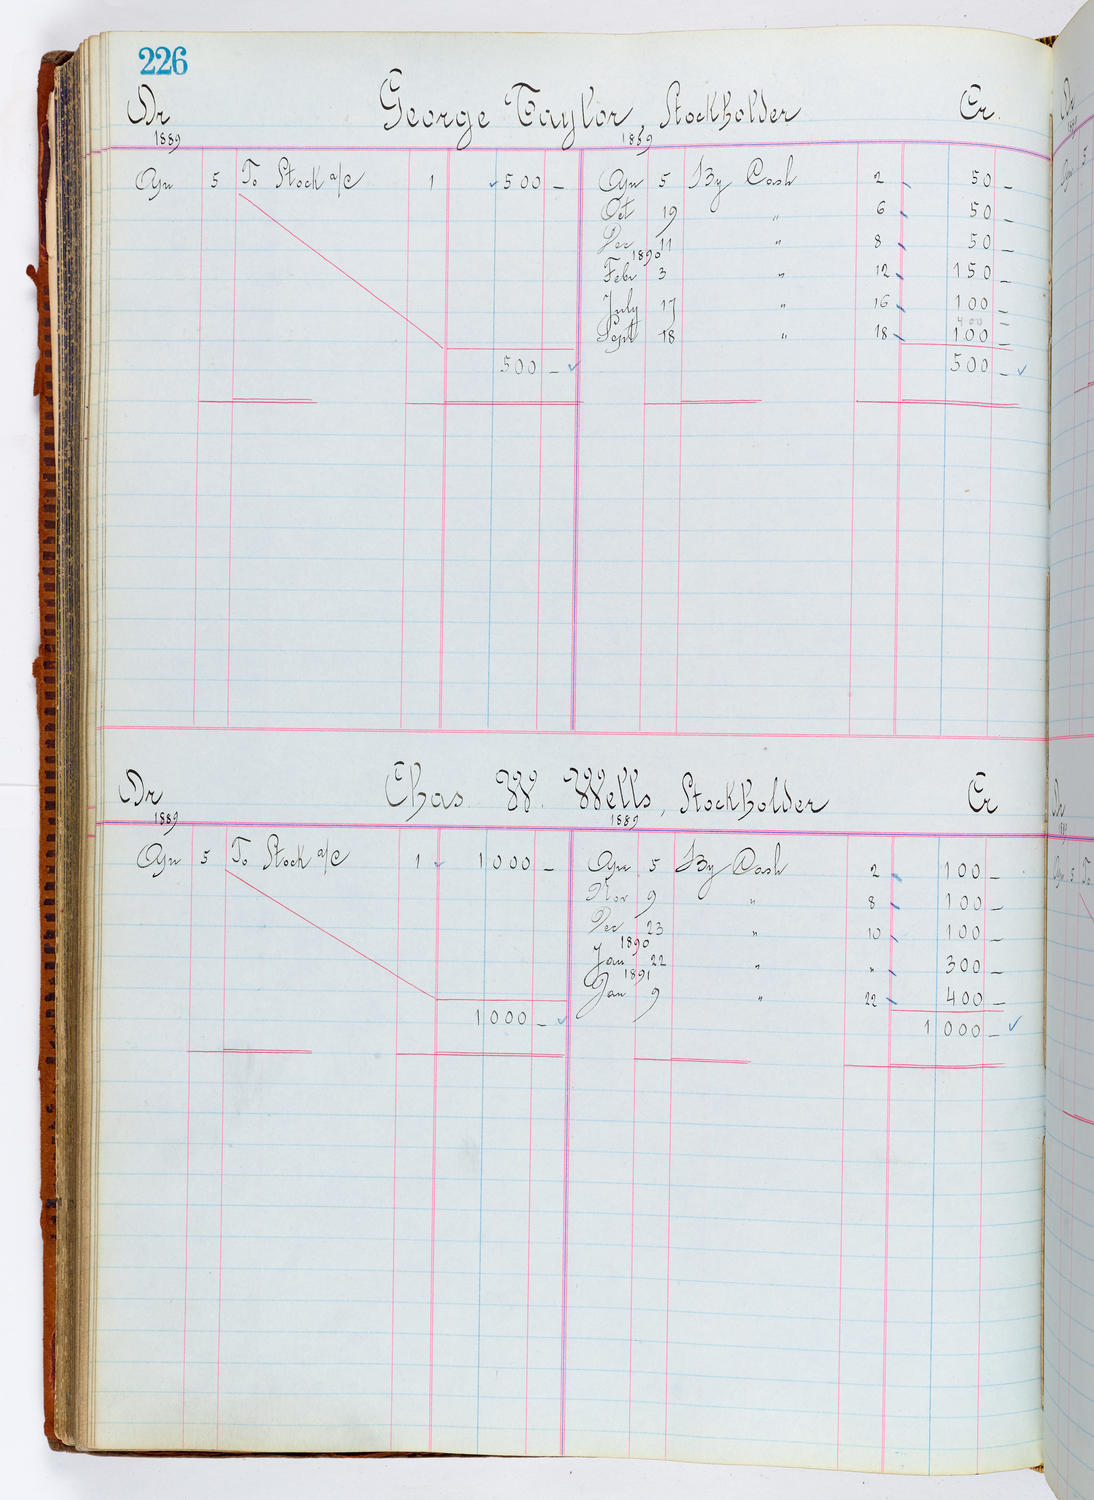 226
Dr George Taylor, Stockholder Cr.
1889 1889
Apr 5 To Stock a/c 1 500 – Apr 5 By Cash 2 50 –
Oct 19 " 6 50 –
Dec 11 " 8 50 –
1890
Febr 3 " 12 150 –
July 17 " 16 100 –
400 –
Sept 18 " 18 100 –
500 – 500 –
Dr Chas. W. Wells, Stockholder Cr
1889 1889
Apr 5 To Stock a/c 1 1000 – Apr 5 By Cash 2 100 –
Nov 9 " 8 100 –
Dec 23 " 10 100 –
1890
Jan 22 " " 300 –
1891
Jan 9 " 22 400 –
1000 – 1000 –